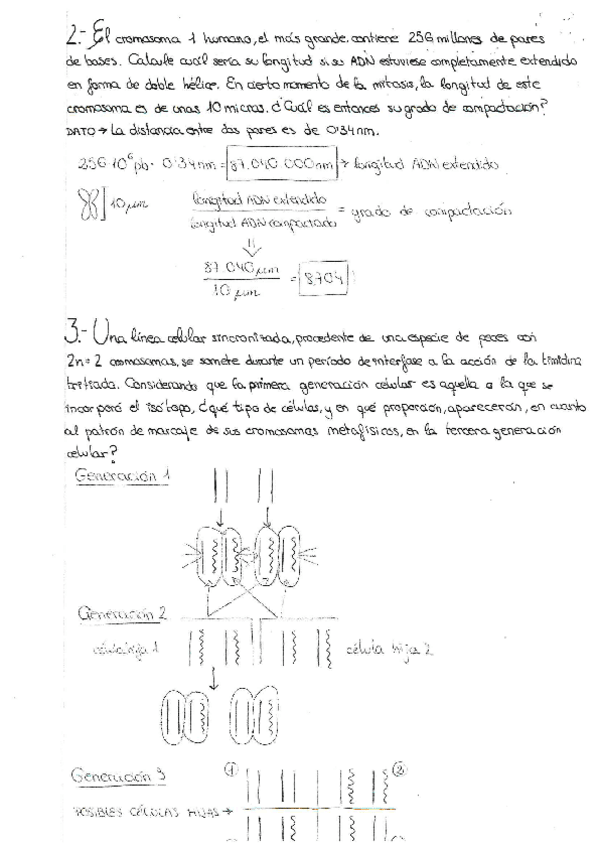 2.- El cromosoma 1 humano, el más grande, contiene 256 millones de pares
de bases. Calcule cuál sería su longitud si su ADN estuviese completamente extendido
en forma de doble hélice. En cierto momento de la mitosis, la longitud de este
cromosoma es de unas 10 micras. ¿Cuál es entonces su grado de compactación?
DATO → La distancia entre dos pares es de 0'34 nm.
256·10⁶ pb · 0'34 nm = 87.040.000 nm → longitud ADN extendido
10 µm
longitud ADN extendido
longitud ADN compactado
= grado de compactación
87.040 µm
10 µm
= 8.704
3.- Una línea celular sincronizada, procedente de una especie de peces con
2n=2 cromosomas, se somete durante un período de interfase a la acción de la timidina
tritiada. Considerando que la primera generación celular es aquella a la que se
incorporó el isótopo, ¿qué tipo de células, y en qué proporción, aparecerán, en cuanto
al patrón de marcaje de sus cromosomas metafísicos, en la tercera generación
celular?
Generación 1
Generación 2
célula hija 1
célula hija 2
Generación 3
① ②
POSIBLES CÉLULAS HIJAS →